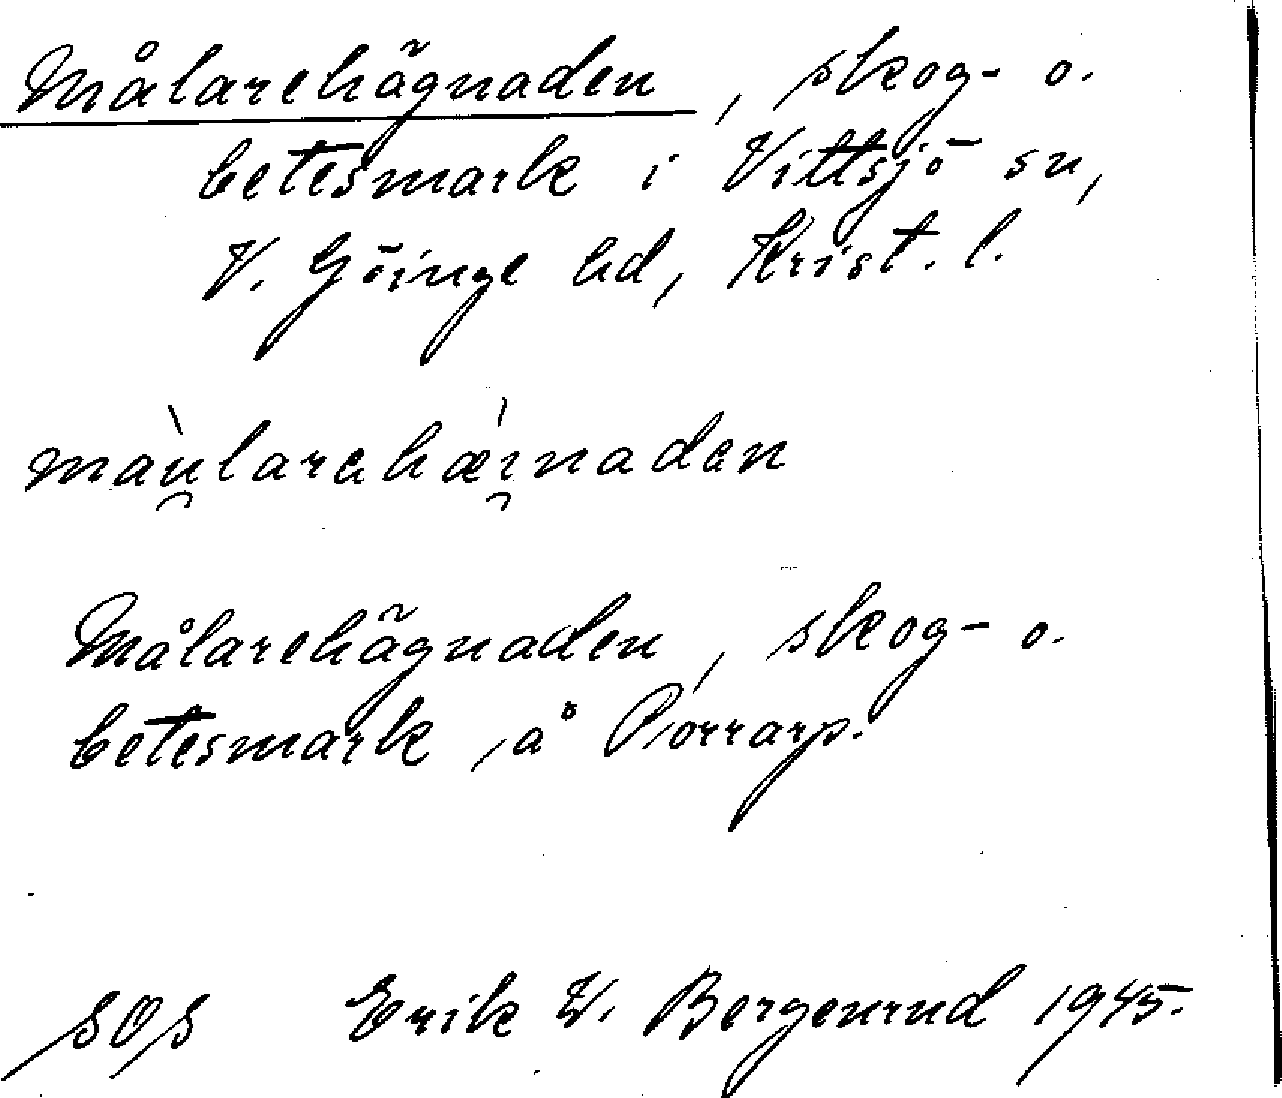 Målarehägnaden, skog- o.
betesmark i Vittsjö sn,
V. Göinge hd, Krist. l.
màu̯larəhæ̀i̯nadən
Målarehägnaden, skog- o.
betesmark, å Porrarp.
SOS Erik W. Bergenrud 1945.